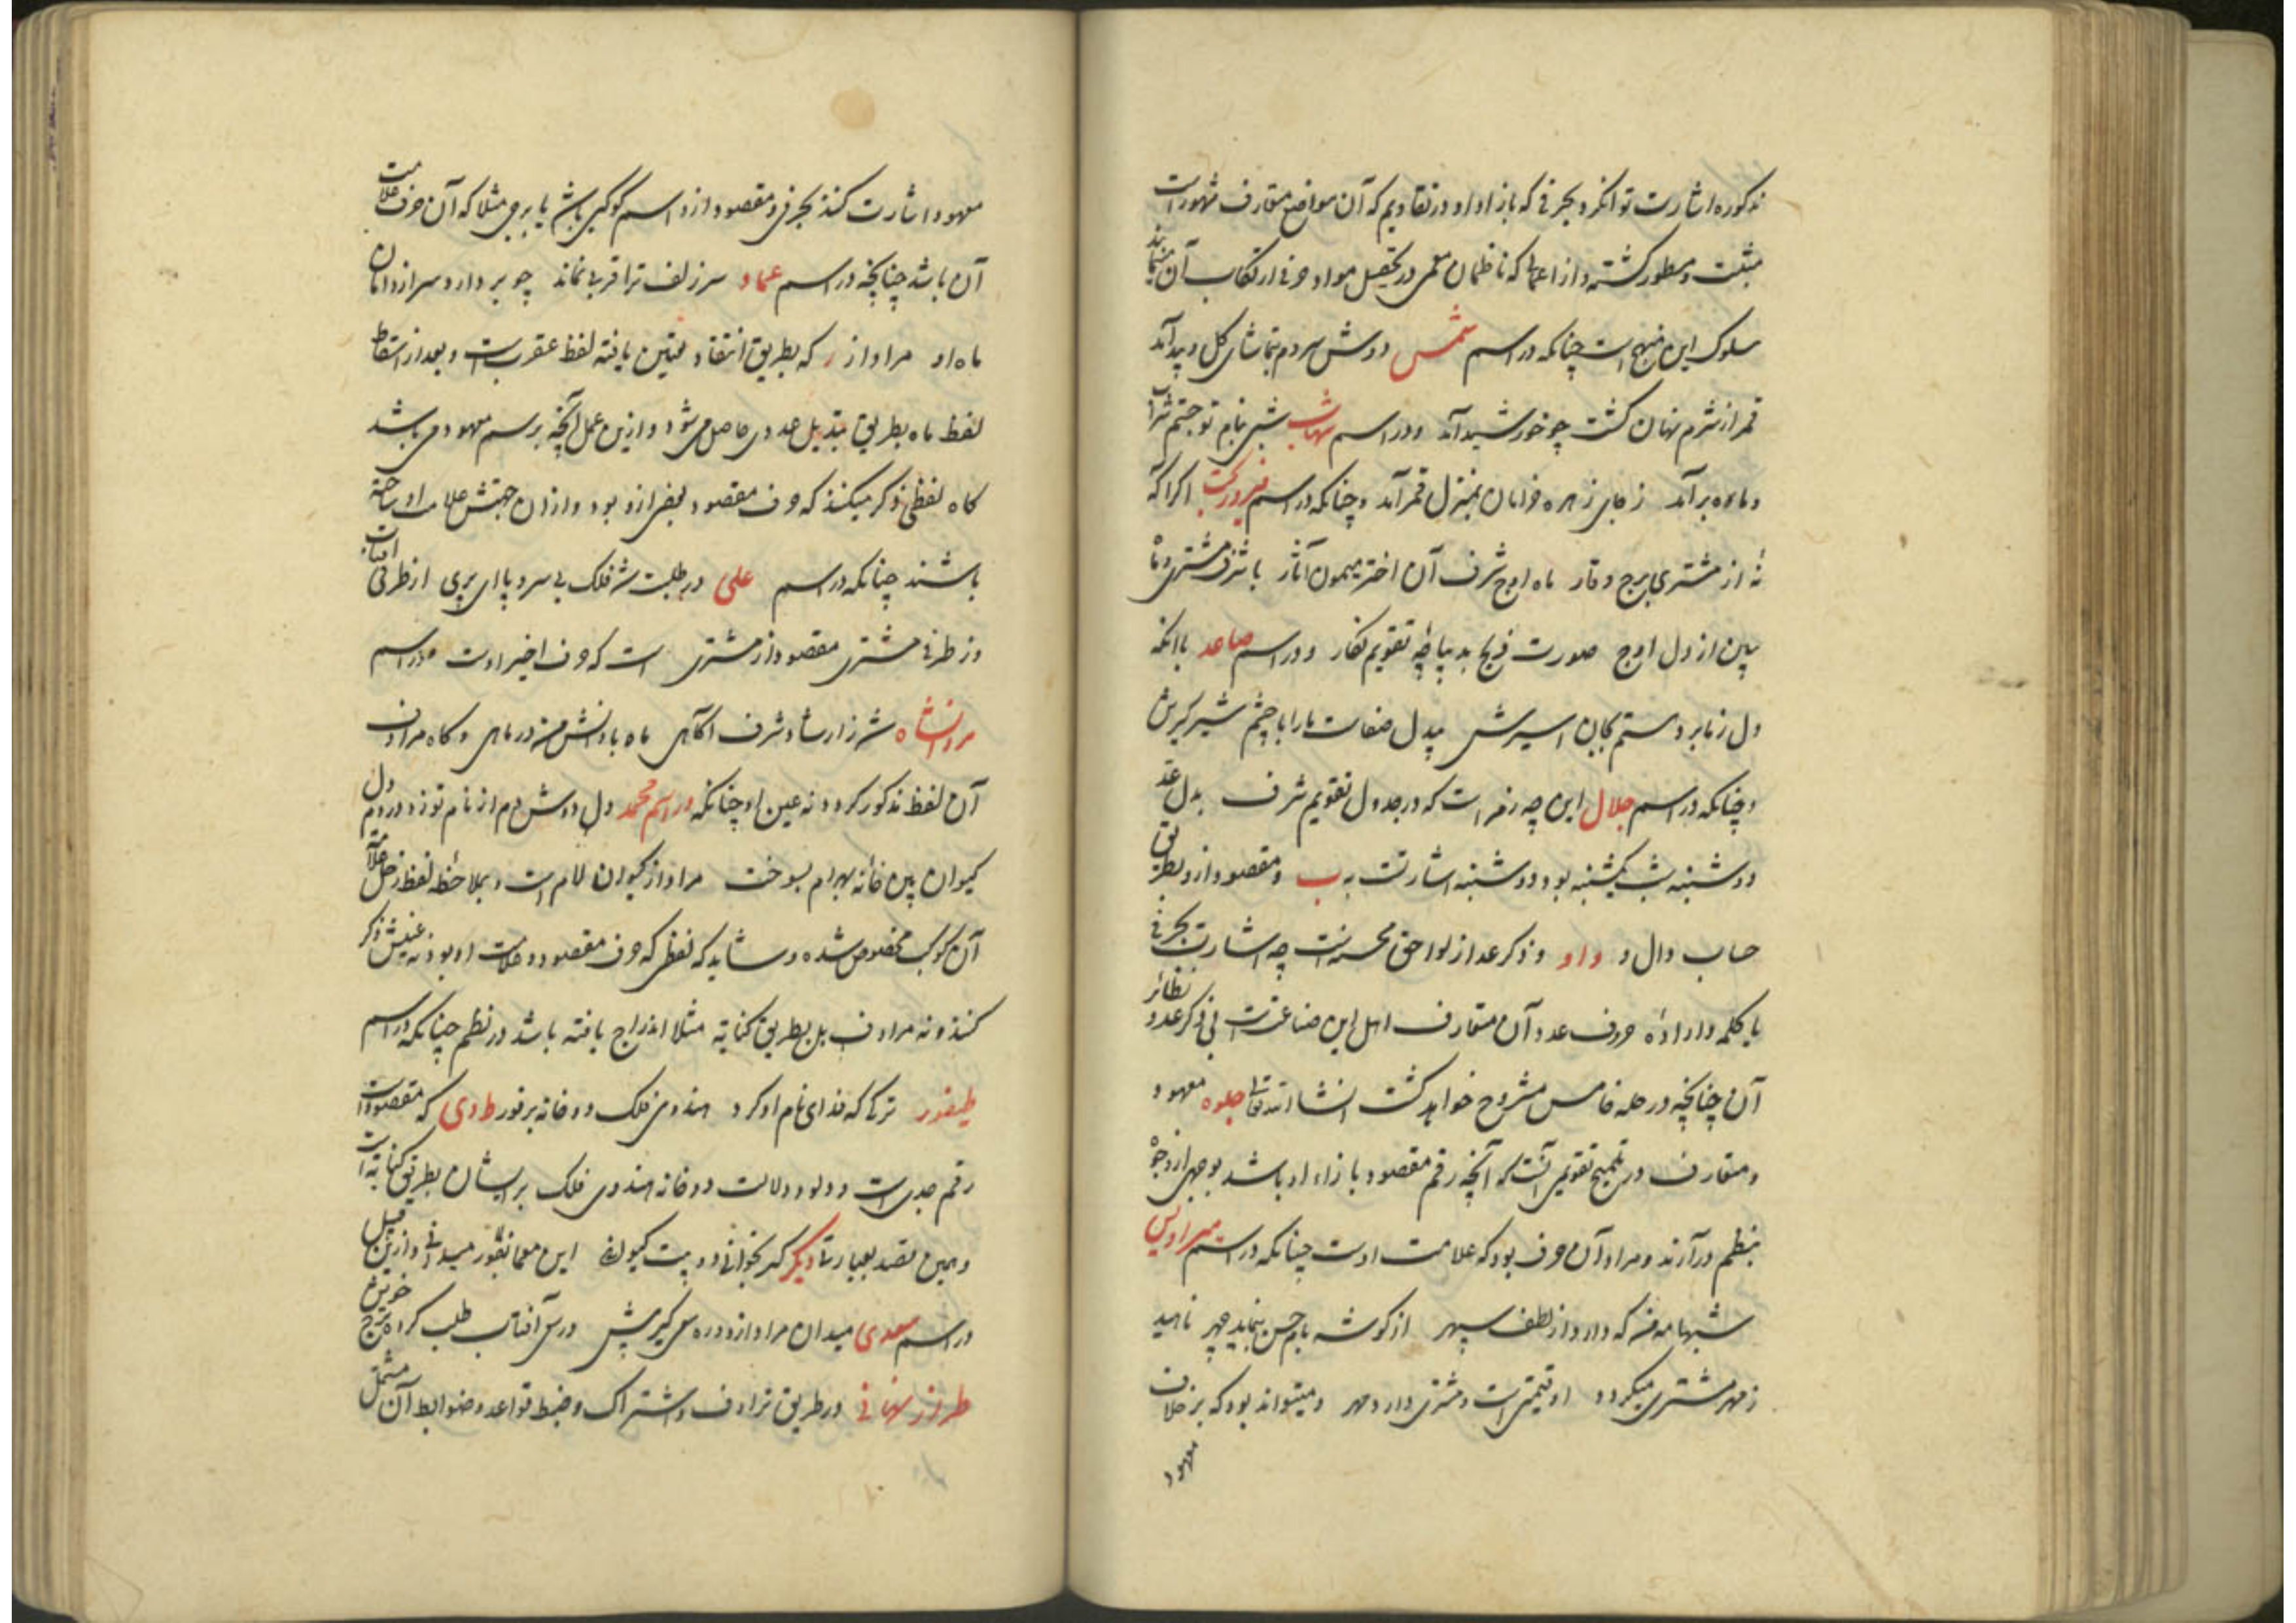 مذکوره اشارت توان کرد بحرفی که بازاء او در تقاویم که آن مواضع متعارف مشهورست
مثبت و مسطور گشته و از اعمالی که ناظمان معمی در تحصیل مواد حرفی ارتکاب آن مینمایند
سلوک این منهج است چنانکه در اسم شمس دوش مردم بتماشای گل و بید آمد
قمر از شرم نهان گشت چو خورشید آمد و در اسم شهاب شبی نام تو جستم
و ماه برآمد ز جای زهره خرامان بمنزل قمر آمد و چنانکه در اسم اگر آگه
نه از مشتری برج وقار ماه اوج شرف آن اختر میمون آثار با شرف مشتری و ماه
ببین از دل اوج صورت فرخ بدیباچه تقویم نگار و در اسم صاعد با آنکه
دل ز ما برد ستم بین اسیرش بیدل صفات ما را با چشم شیرگیرش
و چنانکه در اسم جلال این چه رقم است که در جدول تقویم شرف بدل عقد
دوشنبه شب یکشنبه بود و دوشنبه اشارتست به ب و مقصود ازو بطریق
حساب دال و واو و ذکر عدد از لواحق محسنه است چه اشارت بحرفی
یا کلمه و اراده حروف عدد آن متعارف اهل این صناعت است نی ذکر عدد و نظائر
آن چنانچه در حله خامس مشروح خواهد گشت انشاء الله تعالی جلوه معهود
و متعارف در تلمیح تقویمی آنست که آنچه رقم مقصود بازاء او باشد بوجهی از وجوه
بنظم درآرند و مراد آن حرف بود که علامت اوست چنانکه در اسم میر اویس
شبها مه من که دارد از لطف سپهر از گوشه بام حسن بنماید چهر ناهید
ز مهر مشتری میگردد او قیمتی است و مشتری دارد مهر و میتواند بود که برخلاف
معهود
معهود اشارت کنند بحرفی و مقصود ازو اسم کوکبی باشد یا برجی مثلا که آن حرف علامت
آن باشد چنانچه در اسم عماد سر زلف ترا قربی نماند چو بردارد سر از دامان
ماه او مراد از ر که بطریق انتقاد تعیین یافته لفظ عقرب است و بعد از اسقاط
لفظ ماه بطریق تبدیل حدوی حاصل می شود و ازین عمل آنچه بر رسم معهود می باشد
گاه لفظی ذکر میکنند که حرف مقصود بعضی ازو بود و از آن جهتش علامت او ساخته
باشند چنانکه در اسم علی در طلبت شد فلک بی سر و پا ای پری از طرفی آفتاب
وز طرفی مشتری مقصود از مشتری است که حرف اخیر اوست و در اسم
مردانشاه شد ز ارشاد شرف آگاهی ماه با دانش من در ماهی و گاه مرادف
آن لفظ مذکور گردد نه عین او چنانکه در اسم محمد دل دوش دم از نام تو زد در دم دل
کیوان ببین خانه بهرام بسوخت مراد از کیوان لام است و بملاحظه لفظ زحل علامت
آن کوکب مخصوص شده و شاید که لفظی که حرف مقصود علامت او بود نه عینش ذکر
کنند و نه مرادف بل بطریق کنایه مثلا اندراج یافته باشد در نظم چنانکه در اسم
طیفور ترکی که فدای نام او کرد هندوی فلک دو خانه بر فور ط و ی که مقصود است
رقم جدی است و دلو و دلالت دو خانه هندوی فلک بر ایشان بطریق کنایتست
و همین قصد بعبارتی دیگر گر بخوانی دو بیت کیوان این معما بفور میدانی و ازین قبیل
در اسم سعدی میدان مراد ازو در سعی آفتاب طلب کرد برج خویش
طراز نهانی در طریق ترادف و اشتراک و ضبط قواعد و ضوابط آن مشتمل